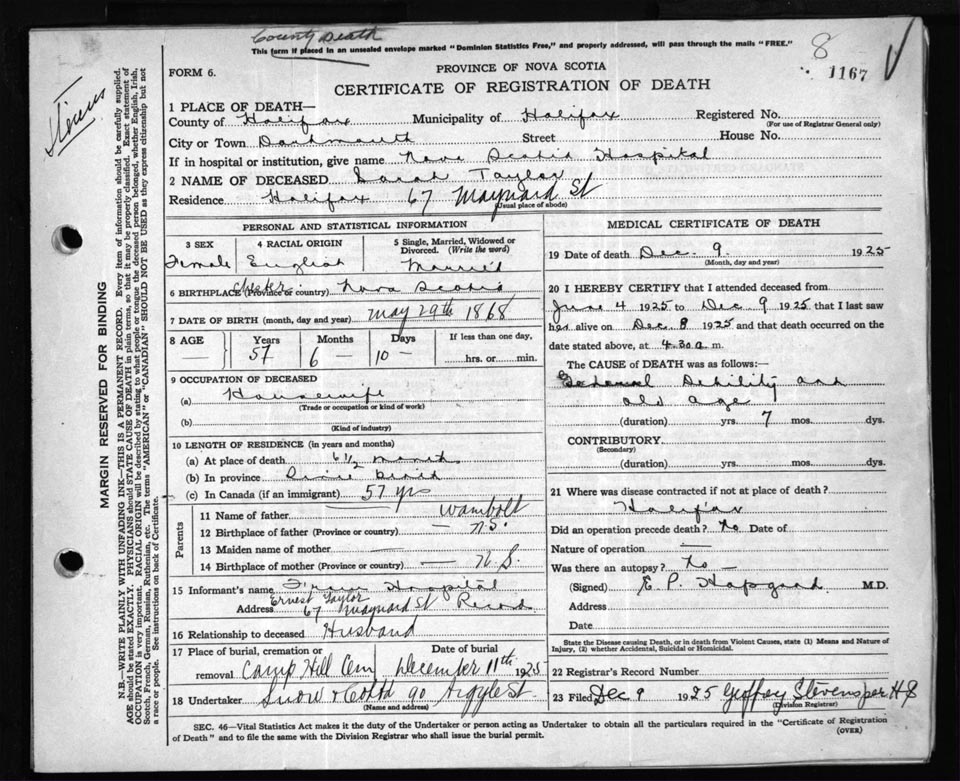 County Death
This form if placed in an unsealed envelope marked "Dominion Statistics Free," and properly addressed, will pass through the mails "FREE."
8
1167
FORM 6.
PROVINCE OF NOVA SCOTIA
CERTIFICATE OF REGISTRATION OF DEATH
1 PLACE OF DEATH—
County of Halifax Municipality of Halifax Registered No.
(For use of Registrar General only)
City or Town Dartmouth Street House No.
If in hospital or institution, give name Nova Scotia Hospital
2 NAME OF DECEASED Sarah Taylor
Residence Halifax 67 Maynard St
(Usual place of abode)
PERSONAL AND STATISTICAL INFORMATION
3 SEX 4 RACIAL ORIGIN 5 Single, Married, Widowed or Divorced. (Write the word)
Female English Married
6 BIRTHPLACE (Province or country) Chester Nova Scotia
7 DATE OF BIRTH (month, day and year) May 29th 1868
8 AGE Years Months Days If less than one day,
— 57 6 — 10 — hrs. or min.
9 OCCUPATION OF DECEASED
(a) Housewife
(Trade or occupation or kind of work)
(b)
(Kind of industry)
10 LENGTH OF RESIDENCE (in years and months)
(a) At place of death 6 1/2 months
(b) In province Since Birth
(c) In Canada (if an immigrant) 57 yrs
Parents
11 Name of father Wambolt
12 Birthplace of father (Province or country) — N.S.
13 Maiden name of mother —
14 Birthplace of mother (Province or country) — N.S.
15 Informant's name From Hospital
Ernest Taylor
Address 67 Maynard St Record
16 Relationship to deceased Husband
17 Place of burial, cremation or removal Date of burial
Camp Hill Cem December 11th 1925
18 Undertaker Snow & Co Ltd 90 Argyle St.
(Name and address)
MEDICAL CERTIFICATE OF DEATH
19 Date of death Dec. 9. 1925
(Month, day and year)
20 I HEREBY CERTIFY that I attended deceased from
June 4 1925 to Dec 9 1925 that I last saw
her alive on Dec 8 1925 and that death occurred on the
date stated above, at 4.30 a. m.
The CAUSE OF DEATH was as follows:—
General Debility and
old age
(duration) yrs. 7 mos. dys.
CONTRIBUTORY.
(Secondary)
(duration) yrs. mos. dys.
21 Where was disease contracted if not at place of death?
Halifax
Did an operation precede death? No Date of
Nature of operation —
Was there an autopsy? No —
(Signed) E. P. Hapgood M.D.
Address
Date
State the Disease causing Death, or in death from Violent Causes, state (1) Means and Nature of
Injury, (2) whether Accidental, Suicidal or Homicidal.
22 Registrar's Record Number
23 Filed Dec 9 1925 Geoffrey Stevens per H.S
(Division Registrar)
SEC. 46—Vital Statistics Act makes it the duty of the Undertaker or person acting as Undertaker to obtain all the particulars required in the "Certificate of Registration
of Death" and to file the same with the Division Registrar who shall issue the burial permit.
(OVER)
MARGIN RESERVED FOR BINDING
N.B.—WRITE PLAINLY WITH UNFADING INK—THIS IS A PERMANENT RECORD. Every item of information should be carefully supplied.
AGE should be stated EXACTLY. PHYSICIANS should STATE CAUSE OF DEATH in plain terms, so that it may be properly classified. Exact statement of
OCCUPATION is very important. RACIAL ORIGIN will be described by stating to what people or tongue the deceased person belonged, whether English, Irish,
Scotch, French, German, Russian, Ruthenian, etc. The terms "AMERICAN" or "CANADIAN" SHOULD NOT BE USED as they express citizenship but not
a race or people. See instructions on back of Certificate.